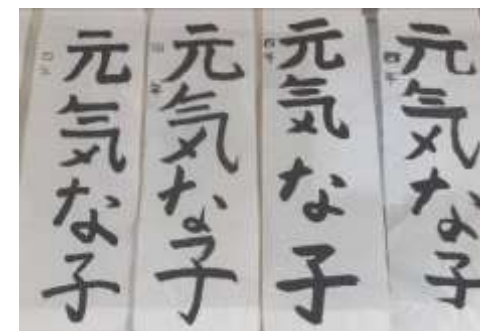 元気な子
元気な子
元気な子
四年
元気な子
四年